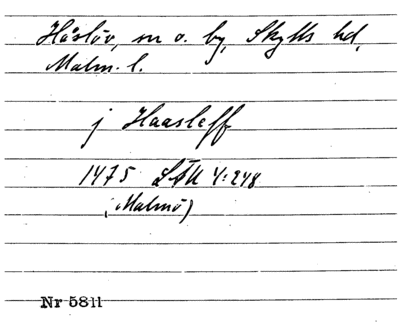 Håslöv, sn o. by, Skytts hd,
Malm. l.
j Haasleff
1475 LÄU 4:248
(Malmö)
Nr 5811